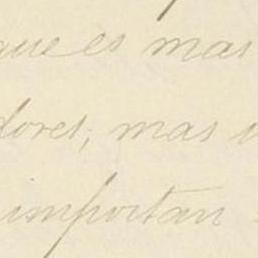 que es mas
dores, mas
importan